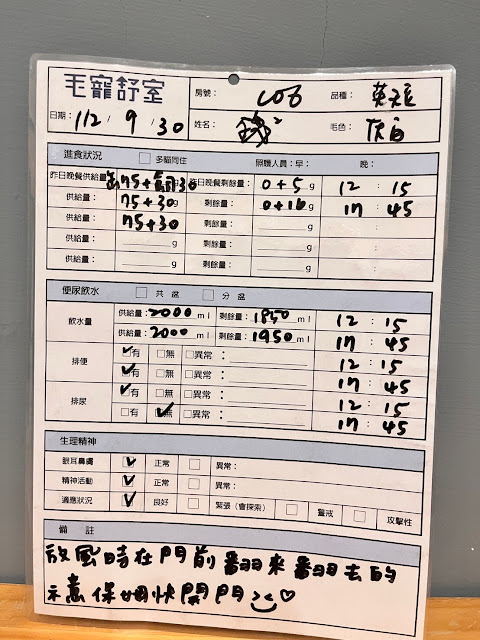 毛寵舒室
房號： C06 品種： 英短
日期： 112 / 9 / 30 姓名： 錢² 毛色： 灰白
進食狀況 □ 多貓同住 照職人員：早： 晚：
昨日晚餐供給量 75+ 30 昨日晚餐剩餘量： 0+5 g 12 : 15
供給量： 75+30 g 剩餘量： 0+10 g 17 : 45
供給量： 75+30 剩餘量： g :
供給量： g 剩餘量： g :
供給量： g 剩餘量： g :
便尿飲水 □ 共 盆 □ 分 盆
飲水量 供給量：2000 ml 剩餘量：1850 ml 12 : 15
供給量：2000 ml 剩餘量：1950 ml 17 : 45
排便 ✓有 □無 □異常： 12 : 15
✓有 □無 □異常： 17 : 45
排尿 ✓有 □無 □異常： 12 : 15
□有 ✓無 □異常： 17 : 45
生理精神
眼耳鼻膚 ✓ 正常 □ 異常：
精神活動 ✓ 正常 □ 異常：
適應狀況 ✓ 良好 □ 緊張（會探索） □ 警戒 □ 攻擊性
備 註
放風時在門前翻來翻去的
示意保姆快開門